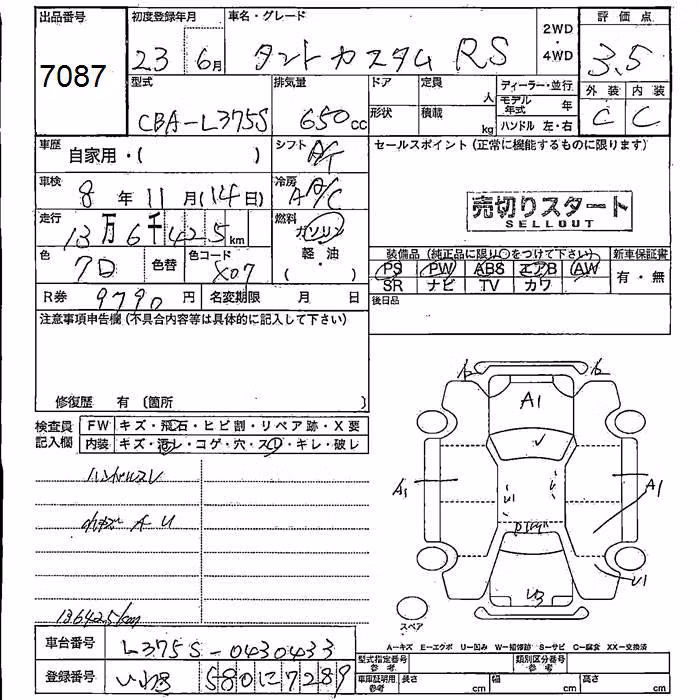 出品番号 初度登録年月 車名・グレード 2WD・4WD 評価点
7087 23年6月 タントカスタム RS 3.5
型式 排気量 ドア 定員 人 ディーラー・並行 外装 内装
CBA-L375S 650cc 形状 積載 kg モデル年式 年 C C
ハンドル 左・右
車歴 自家用・( ) シフト AT セールスポイント (正常に機能するものに限ります)
車検 8年11月(14日) 冷房 A/C
売切りスタート
SELLOUT
走行 13万6千425km 燃料 ガソリン
軽・油
( )
色 クロ 色替 色コード X07
装備品 (純正品に限り○をつけて下さい) 新車保証書
PS PW ABS エアB AW 有・無
SR ナビ TV カワ
R券 9790円 名変期限 月 日 後日品
注意事項申告欄 (不具合内容等は具体的に記入して下さい)
修復歴 有 〔箇所 〕
検査員記入欄 FW キズ・飛石・ヒビ割・リペア跡・X要
内装 キズ・汚レ・コゲ・穴・スレ・キレ・破レ
ハンドルスレ
A U
136425km
A1
A1
A1
U1
U3
スペア
A-キズ E-エクボ U-凹み W-補修跡 S-サビ C-腐食 XX-交換済
車台番号 L375S-0430433
型式指定番号 参考 類別区分番号 参考
登録番号 580 に 7289
車庫証明用 参考 長さ cm 幅 cm 高さ cm